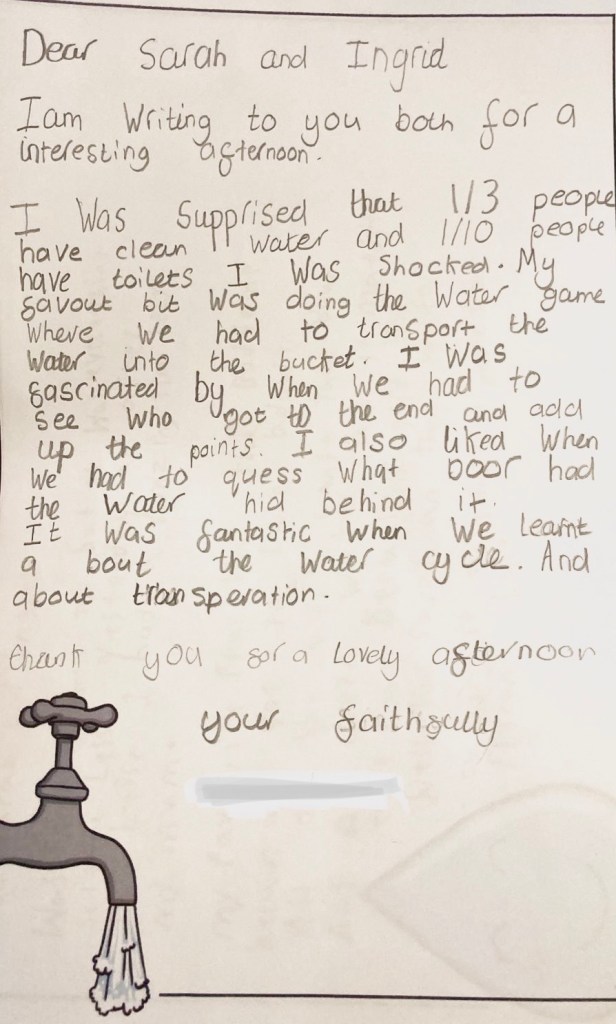 Dear Sarah and Ingrid
I am Writing to you both for a
interesting afternoon.
I Was Supprised that 1/3 people
have clean Water and 1/10 people
have toilets I Was Shocked. My
favout bit Was doing the Water game
Where We had to transport the
Water into the bucket. I Was
fascinated by When We had to
see Who got to the end and add
up the points. I also liked When
We had to guess What door had
the Water hid behind it.
It Was fantastic When We learnt
a bout the Water cycle. And
about transperation.
thank you for a Lovely afternoon
your faithfully